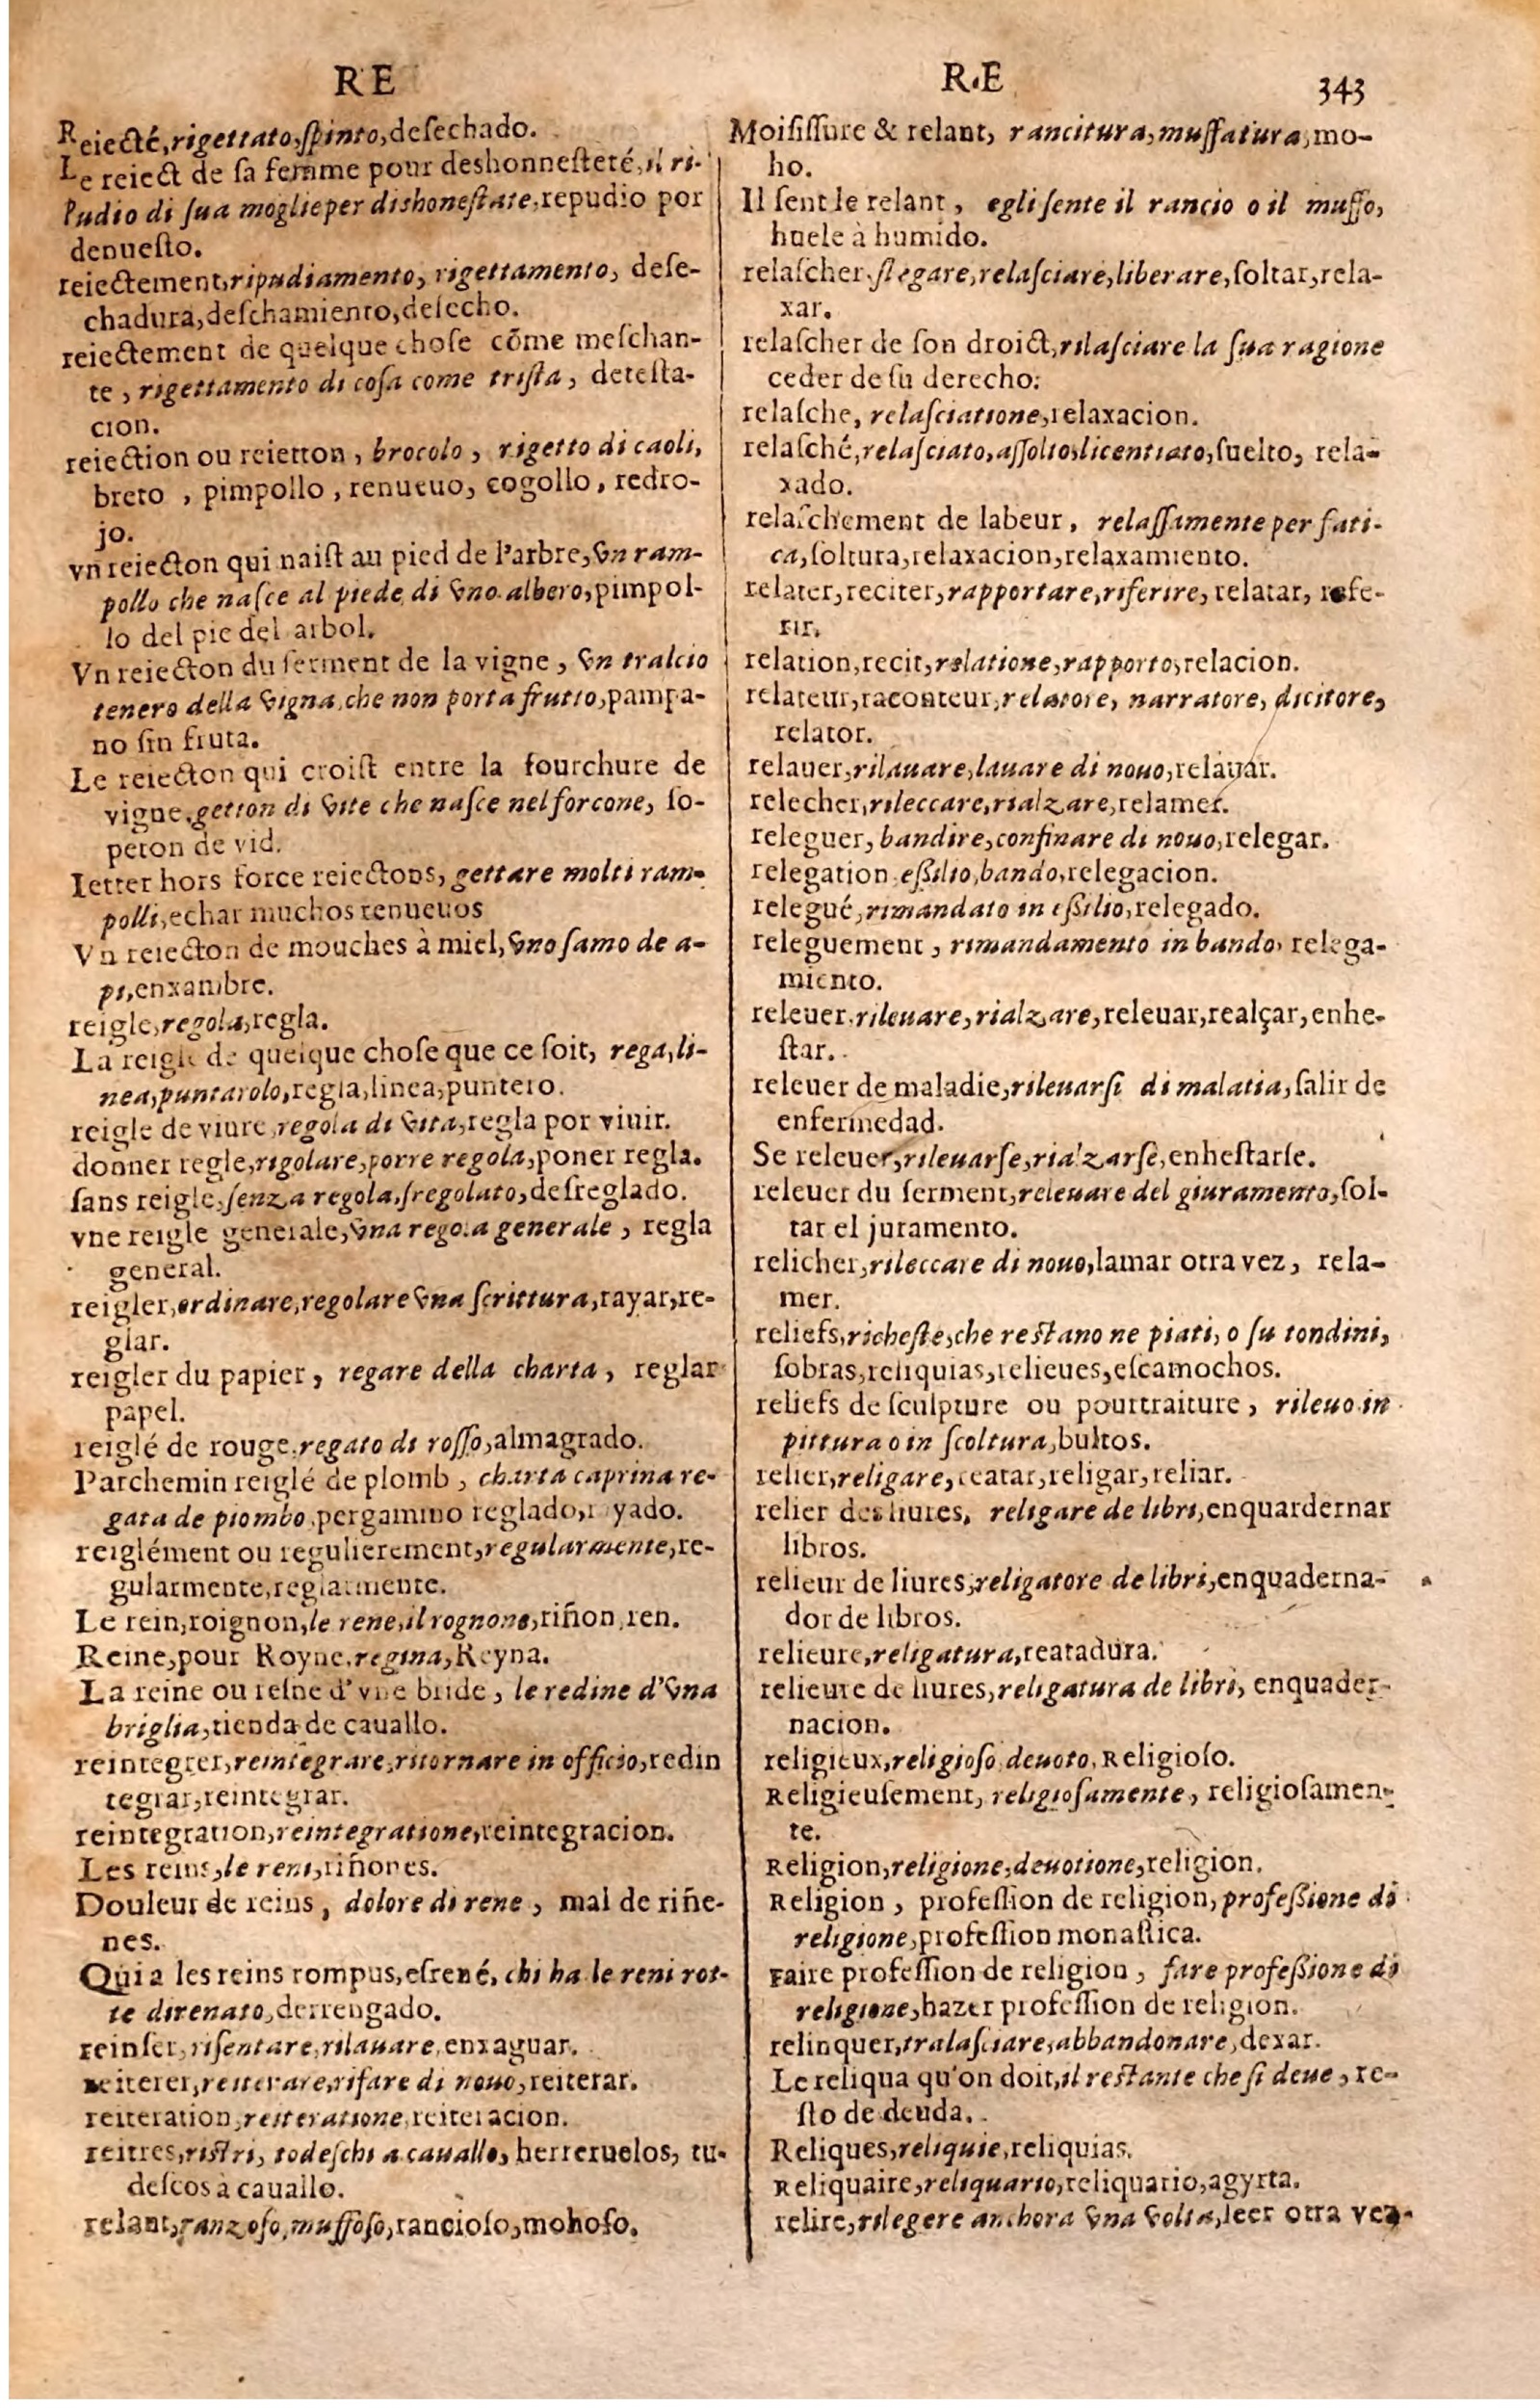 RE
Reiecté, rigettato, spinto, desechado.
Le reiect de sa femme pour deshonnesteté, il ri-
pudio di sua moglie per dishonestate, repudio por
denuesto.
reiectement, ripudiamento, rigettamento, dese-
chadura, deschamiento, desecho.
reiectement de quelque chose cõme meschan-
te, rigettamento di cosa come trista, detesta-
cion.
reiection ou reietton, brocolo, rigetto di caoli,
breto, pimpollo, renueuo, cogollo, redro-
jo.
vn reiecton qui naist au pied de l'arbre, vn ram-
pollo che nasce al piede di vno albero, pimpol-
lo del pie del arbol.
Vn reiecton du serment de la vigne, vn tralcio
tenero della vigna, che non porta frutto, pampa-
no sin fruta.
Le reiecton qui croist entre la fourchure de
vigne, getton di vite che nasce nel forcone, so-
peton de vid.
Ietter hors force reiectons, gettare molti ram-
polli, echar muchos renueuos
Vn reiecton de mouches à miel, vno samo de a-
pi, enxambre.
reigle, regola, regla.
La reigle de quelque chose que ce soit, rega, li-
nea, puntarolo, regla, linea, puntero.
reigle de viure, regola di vita, regla por viuir.
donner regle, rigolare, porre regola, poner regla.
sans reigle, senza regola, sregolato, desreglado.
vne reigle generale, vna regola generale, regla
general.
reigler, ordinare, regolare vna scrittura, rayar, re-
glar.
reigler du papier, regare della charta, reglar
papel.
reiglé de rouge, regato di rosso, almagrado.
Parchemin reiglé de plomb, charta caprina re-
gata de piombo, pergamino reglado, r yado.
reiglément ou regulierement, regularmente, re-
gularmente, reglarmente.
Le rein, roignon, le rene, il rognone, riñon, ren.
Reine, pour Royne, regina, Reyna.
La reine ou resne d'vne bride, le redine d'vna
briglia, rienda de cauallo.
reintegrer, reintegrare, ritornare in officio, redin
tegrar, reintegrar.
reintegration, reintegratione, reintegracion.
Les reins, le reni, riñones.
Douleur de reins, dolore di rene, mal de riñe-
nes.
Qui a les reins rompus, esrené, chi ha le reni rot-
te direnato, derrengado.
reinser, risentare, rilauare, enxaguar.
reiterer, reiterare, rifare di nouo, reiterar.
reiteration, reiteratione, reiteracion.
reitres, ristri, todeschi a cauallo, herreruelos, tu-
descos à cauallo.
relant, ranzoso, muffoso, rancioso, mohoso.
RE 343
Moisissure & relant, rancitura, muffatura, mo-
ho.
Il sent le relant, egli sente il rancio o il muffo,
huele à humido.
relascher, slegare, relasciare, liberare, soltar, rela-
xar.
relascher de son droict, rilasciare la sua ragione
ceder de su derecho.
relasche, relasciatione, relaxacion.
relasché, relasciato, assolto, licentiato, suelto, rela-
xado.
relaschement de labeur, relassamente per fati-
ca, soltura, relaxacion, relaxamiento.
relater, reciter, rapportare, riferire, relatar, refe-
rir.
relation, recit, relatione, rapporto, relacion.
relateur, raconteur, relatore, narratore, dicitore,
relator.
relauer, rilauare, lauare di nouo, relauar.
relecher, rileccare, rialzare, relamer.
releguer, bandire, confinare di nouo, relegar.
relegation, essilio, bando, relegacion.
relegué, rimandato in essilio, relegado.
releguement, rimandamento in bando, relega-
miento.
releuer, rileuare, rialzare, releuar, realçar, enhe-
star.
releuer de maladie, rileuarsi di malatia, salir de
enfermedad.
Se releuer, rileuarse, rialzarse, enhestarse.
releuer du serment, releuare del giuramento, sol-
tar el juramento.
relicher, rileccare di nouo, lamar otra vez, rela-
mer.
reliefs, richeste, che restano ne piati, o su tondini,
sobras, reliquias, relieues, escamochos.
reliefs de sculpture ou pourtraiture, rileuo in
pittura o in scoltura, bultos.
relier, religare, reatar, religar, reliar.
relier des liures, religare de libri, enquardernar
libros.
relieur de liures, religatore de libri, enquaderna-
dor de libros.
relieure, religatura, reatadura.
relieure de liures, religatura de libri, enquader-
nacion.
religieux, religioso, deuoto, Religioso.
Religieusement, religiosamente, religiosamen-
te.
Religion, religione, deuotione, religion.
Religion, profession de religion, professione di
religione, profession monastica.
Faire profession de religion, fare professione di
religione, hazer profession de religion.
relinquer, tralasciare, abbandonare, dexar.
Le reliqua qu'on doit, il restante che si deue, re-
sto de deuda.
Reliques, reliquie, reliquias.
Reliquaire, reliquario, reliquario, agyrta.
relire, rilegere anchora vna volta, leer otra vez.